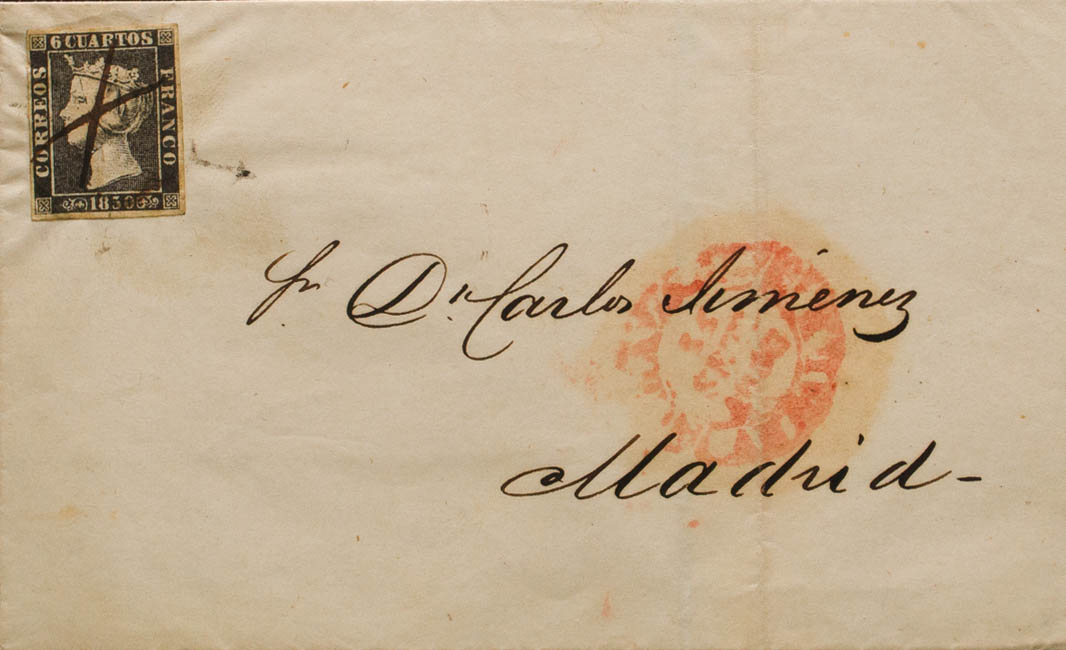 6 CUARTOS
CORREOS
FRANCO
1850
Sr Dn. Carlos Jiménez
Madrid-